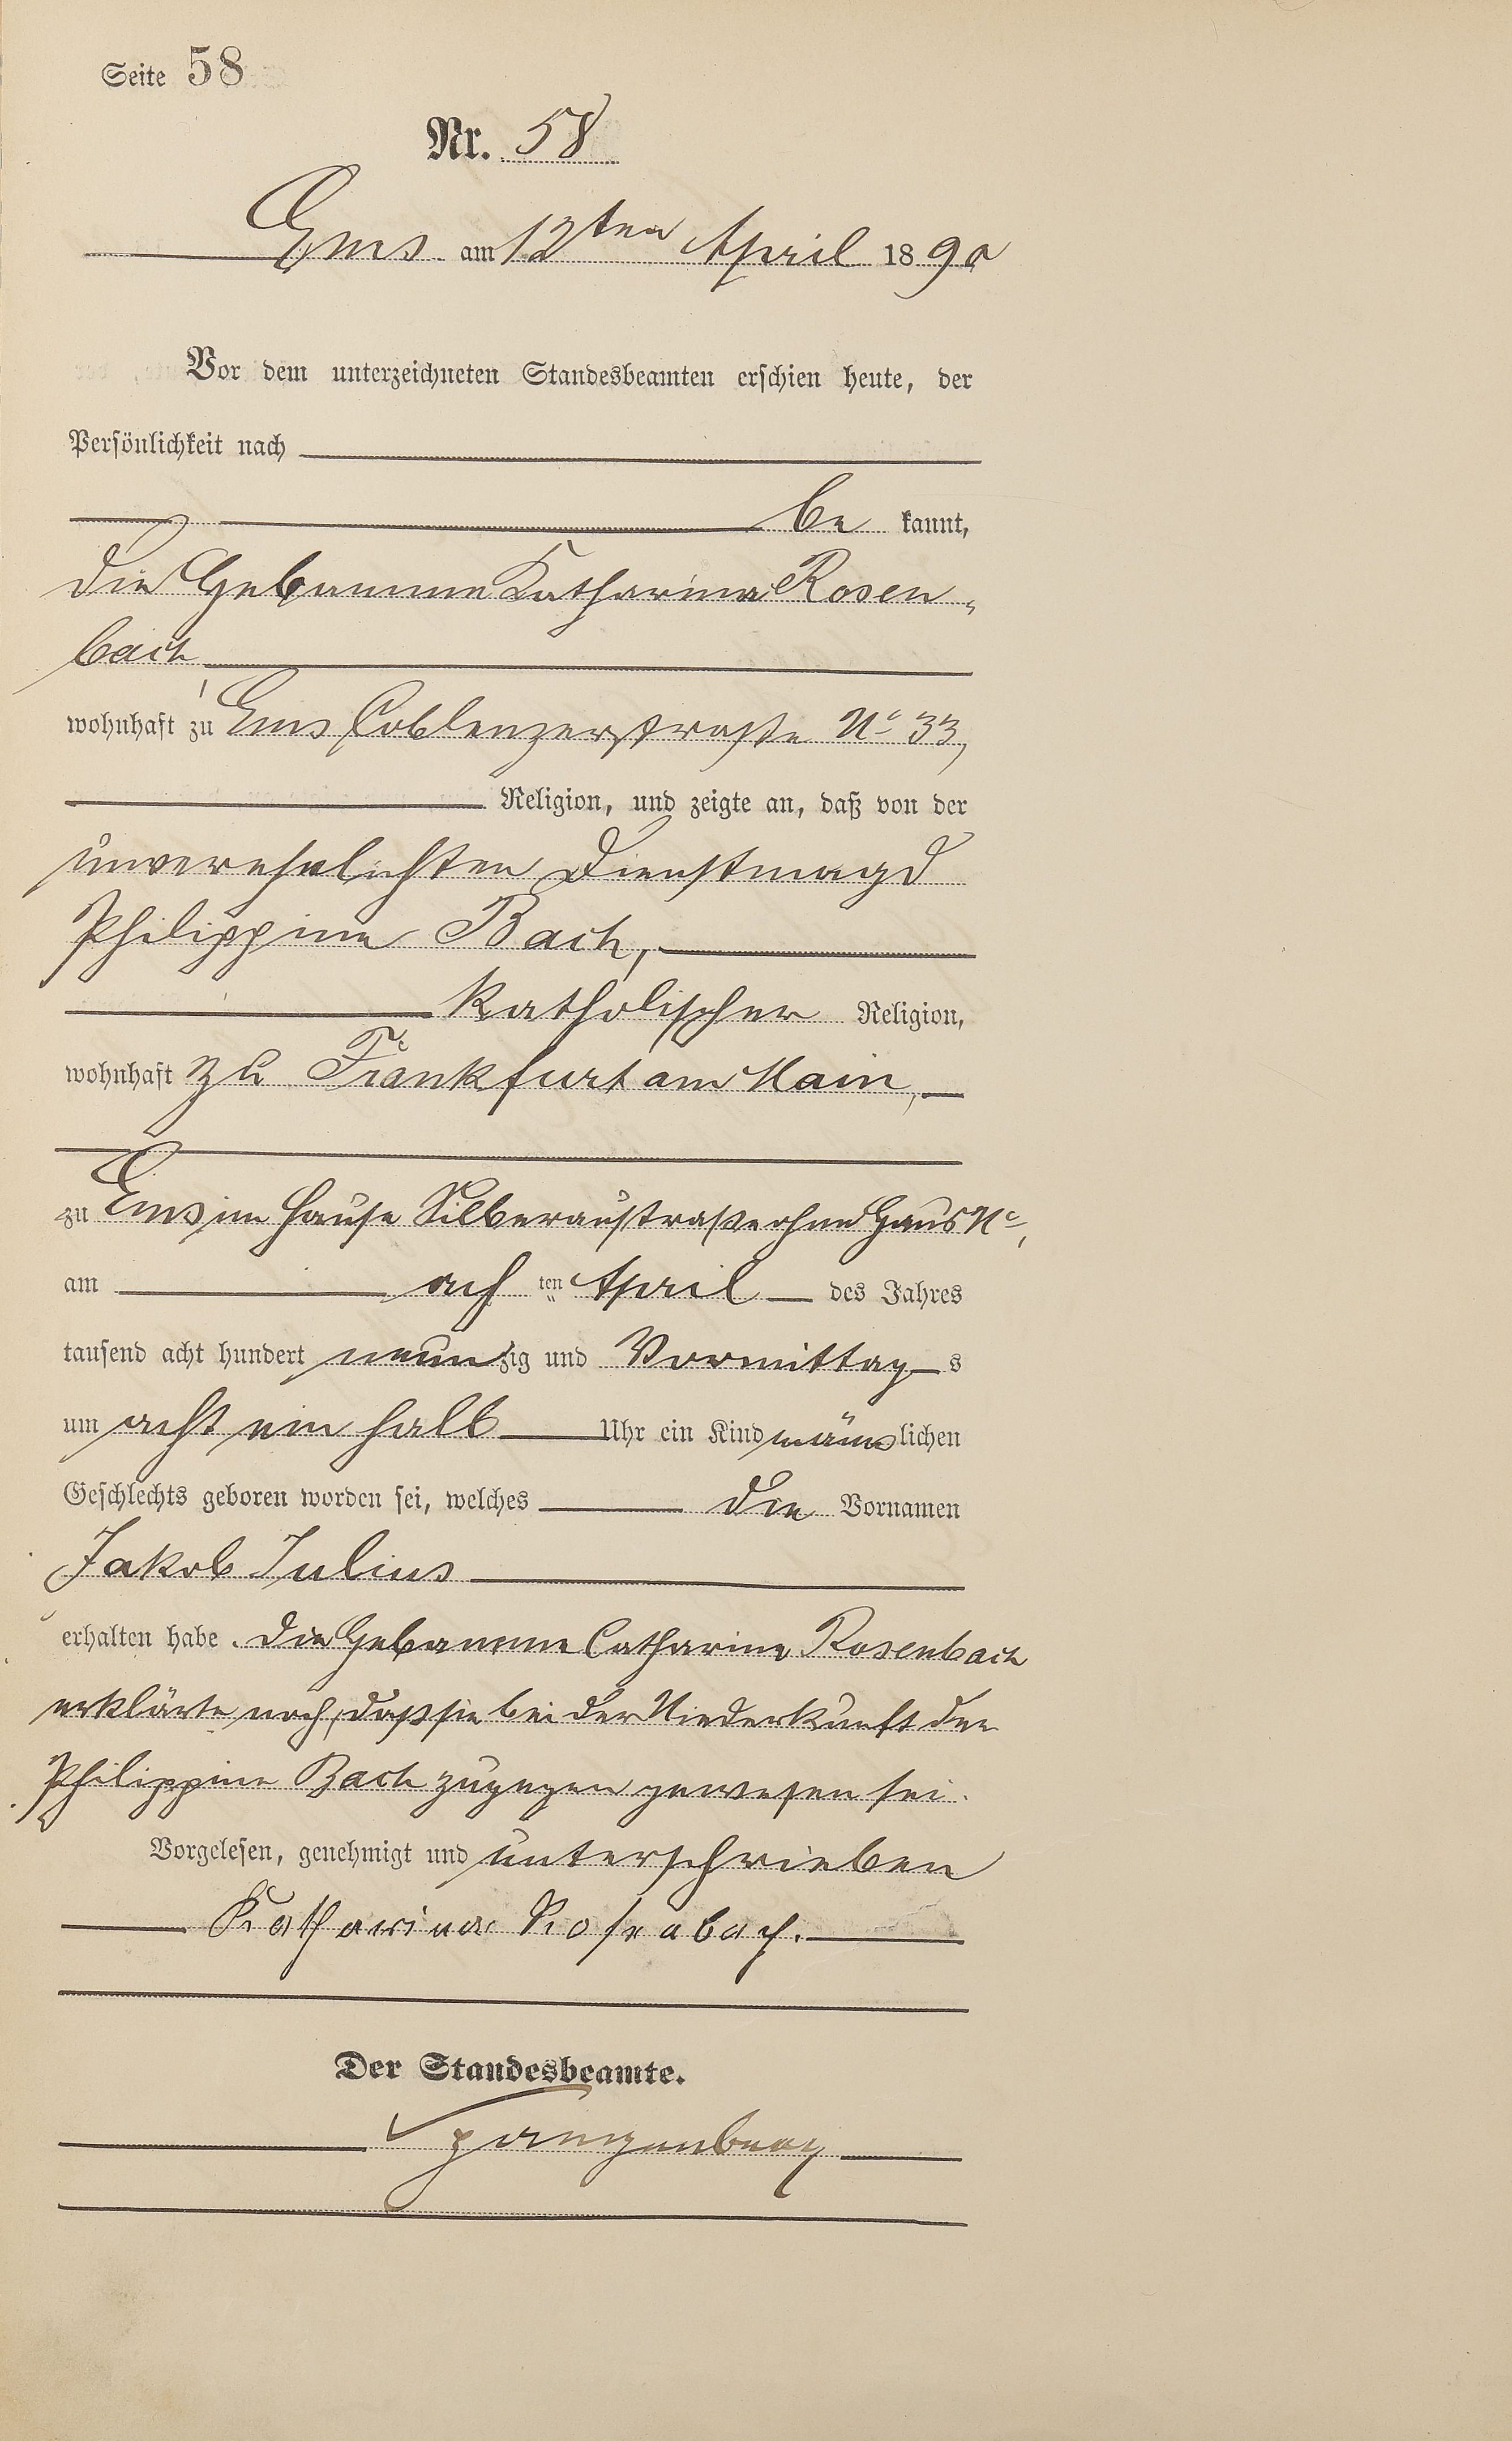 Seite 58
Nr. 58
Ems am 12ten April 1890
Vor dem unterzeichneten Standesbeamten erschien heute, der
Persönlichkeit nach
be kannt,
die Hebamme Katharina Rosen-
bach,
wohnhaft zu Ems Coblenzerstraße No 33,
Religion, und zeigte an, daß von der
unverehelichten Dienstmagd
Philippine Bach,
katholischer Religion,
wohnhaft zu Frankfurt am Main,
zu Ems im Hause Silberaustraße ohne Haus No,
am ach ten April des Jahres
tausend acht hundert neun zig und Vormittag s
um acht ein halb Uhr ein Kind männ lichen
Geschlechts geboren worden sei, welches die Vornamen
Jakob Julius
erhalten habe. Die Hebamme Catharina Rosenbach
erklärte noch, daß sie bei der Niederkunft der
Philippine Bach zugegen gewesen sei.
Vorgelesen, genehmigt und unterschrieben
Katharina Rosenbach.
Der Standesbeamte.
Spangenberg